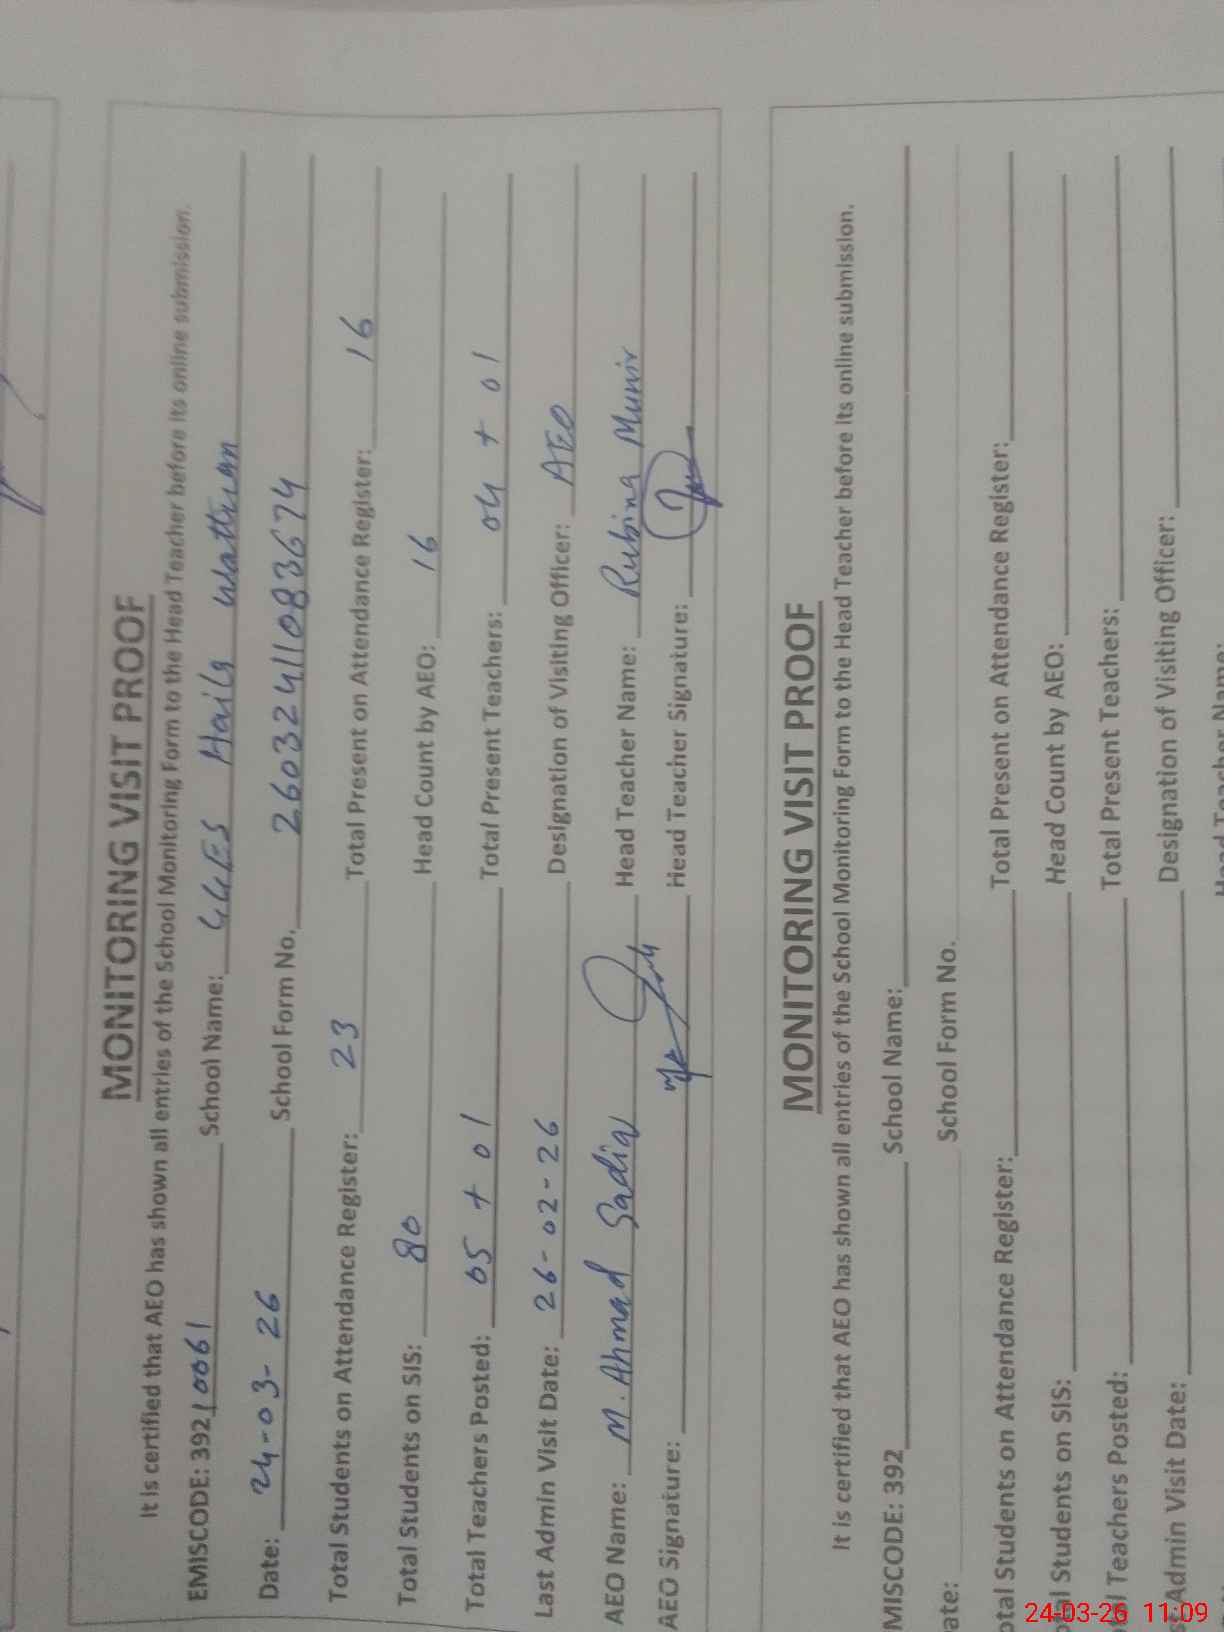 MONITORING VISIT PROOF
It is certified that AEO has shown all entries of the School Monitoring Form to the Head Teacher before its online submission.
EMISCODE: 39210061 School Name: GGES Haily Wattuan
Date: 24-03-26 School Form No. 2603241108
Total Students on Attendance Register: 23 Total Present on Attendance Register: 16
Total Students on SIS: 80 Head Count by AEO: 16
Total Teachers Posted: 05 + 01 Total Present Teachers: 04 + 01
Last Admin Visit Date: 26-02-26 Designation of Visiting Officer: AEO
AEO Name: M. Ahmad Sadiq Head Teacher Name: Rubina Munir
AEO Signature: Head Teacher Signature:
MONITORING VISIT PROOF
It is certified that AEO has shown all entries of the School Monitoring Form to the Head Teacher before its online submission.
MISCODE: 392 School Name:
ate: School Form No.
otal Students on Attendance Register: Total Present on Attendance Register:
otal Students on SIS: Head Count by AEO:
Teachers Posted: Total Present Teachers:
Admin Visit Date: Designation of Visiting Officer:
24-03-26 11:09